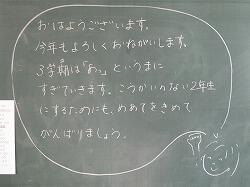 おはようございます。
今年もよろしくおねがいします。
3学期は「あっ」というまに
すぎていきます。こうかいのない2年生
にするためにも、めあてをきめて
がんばりましょう。